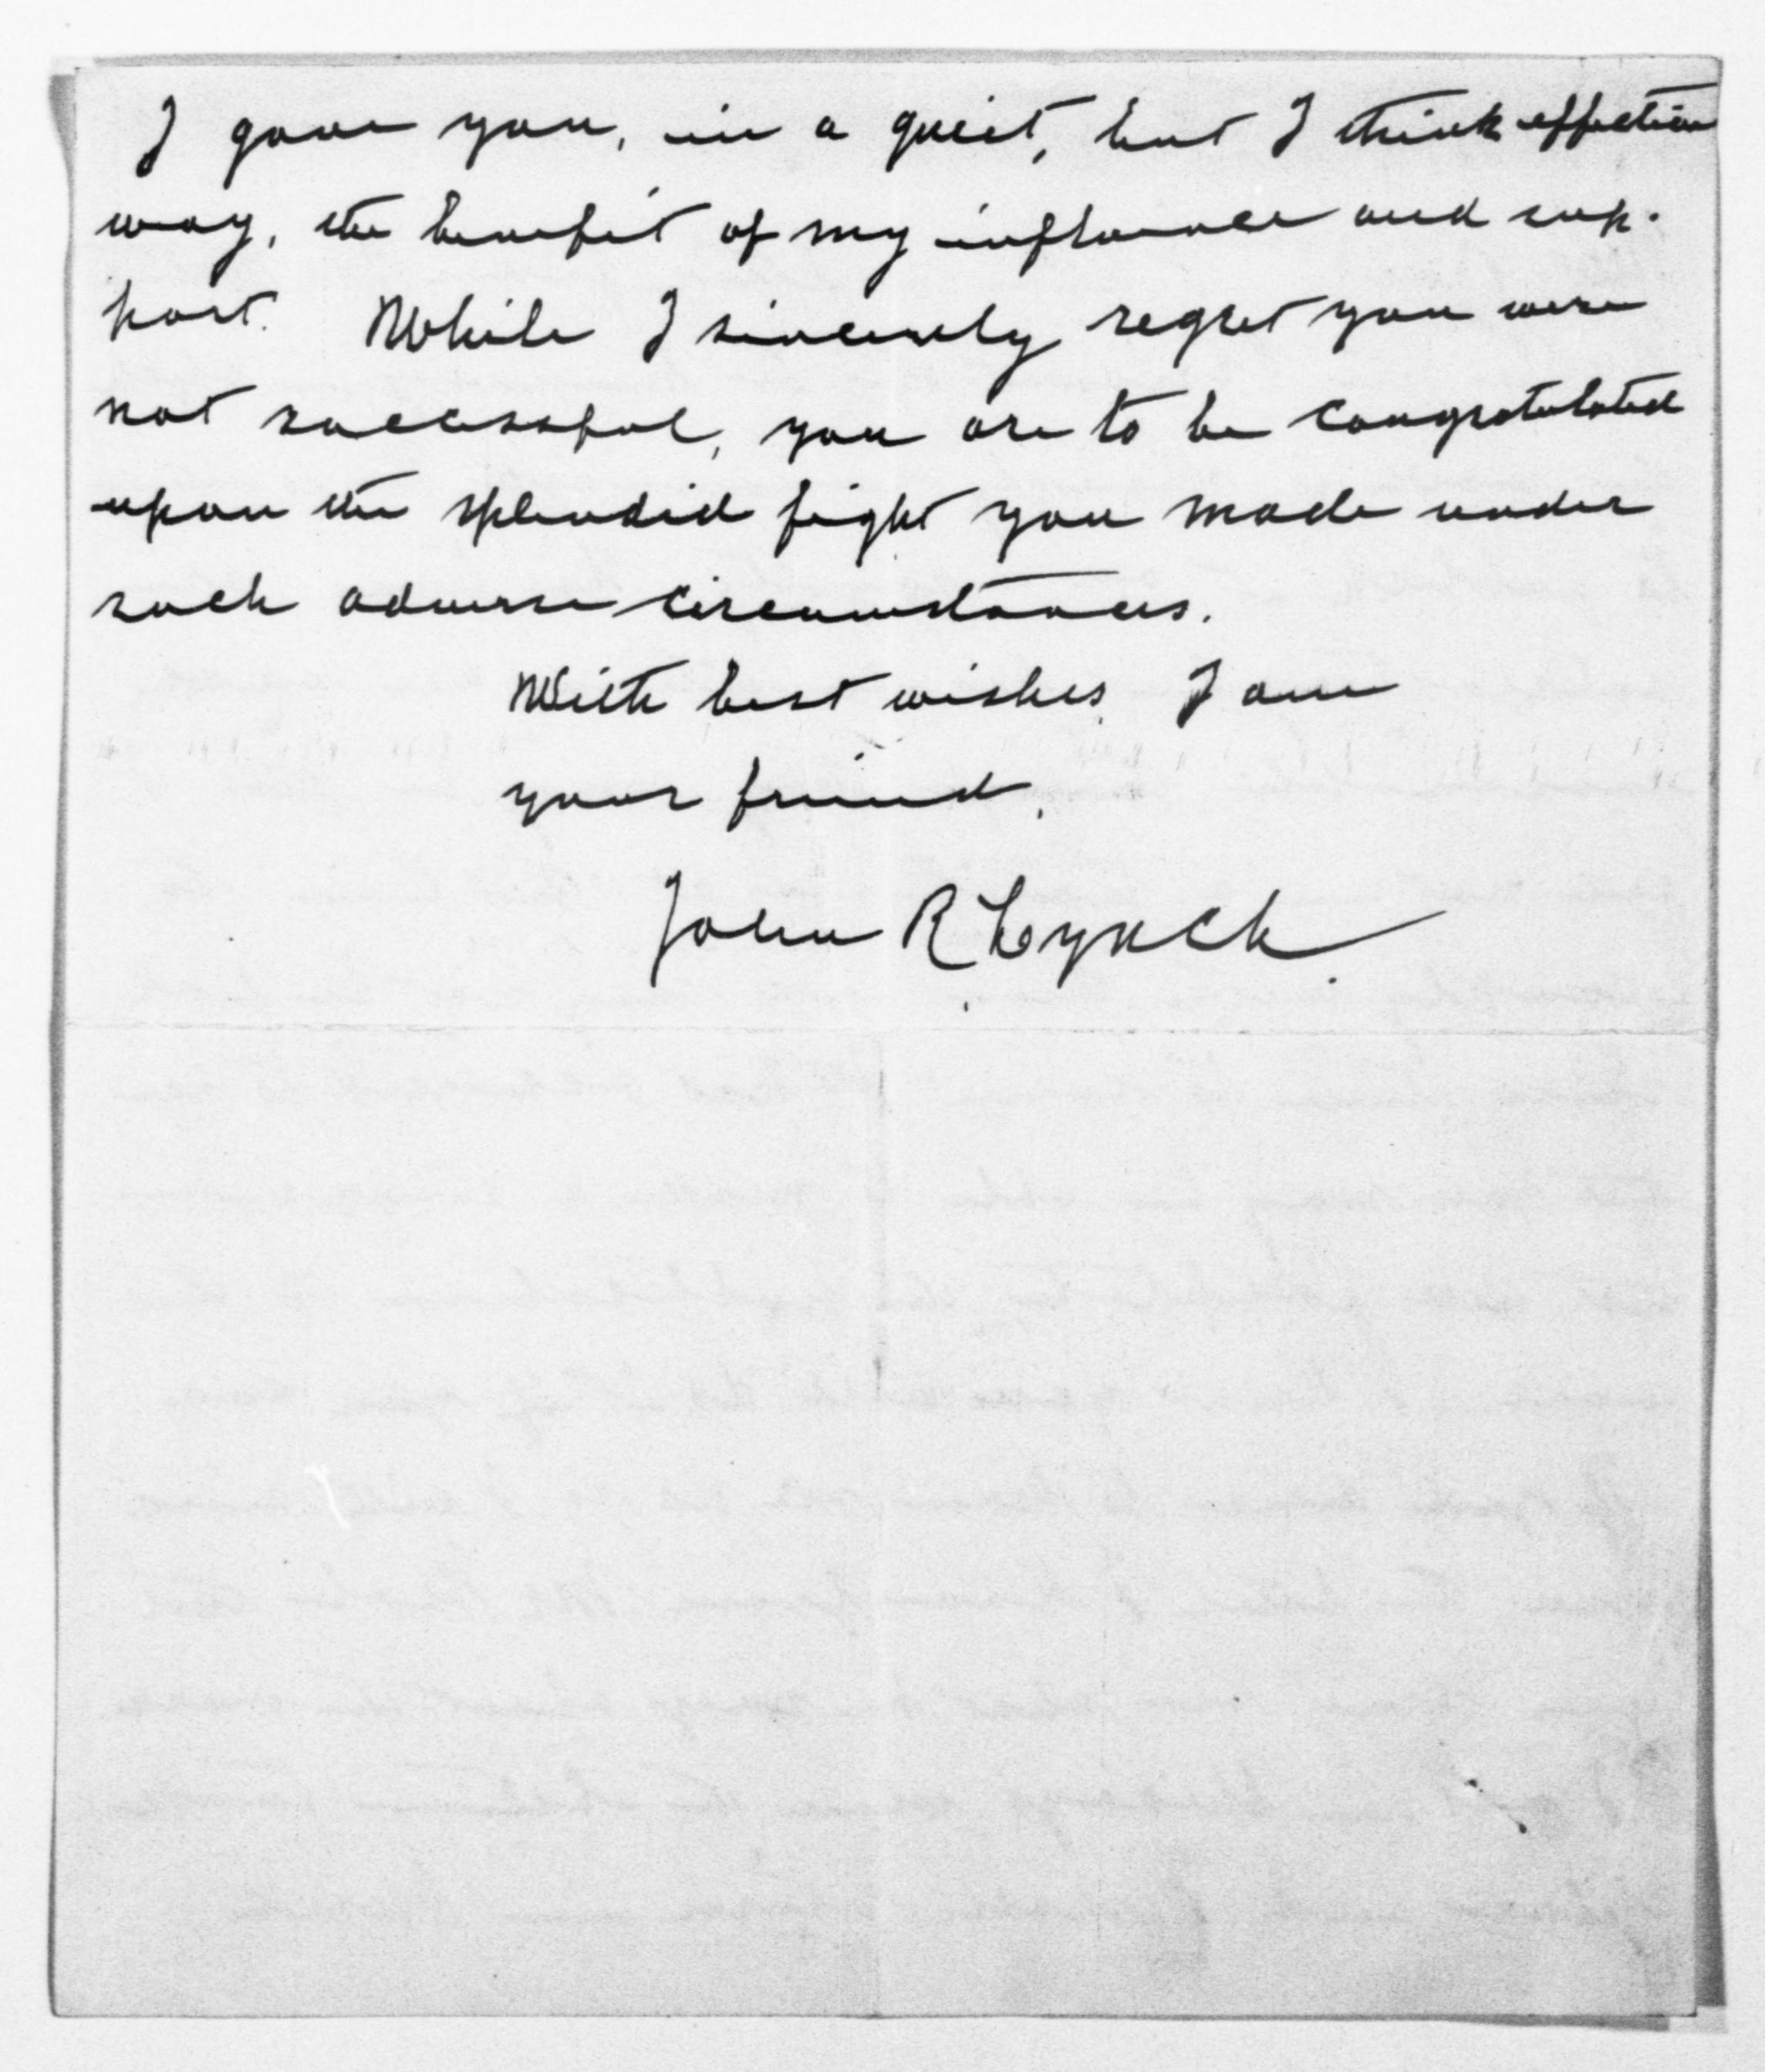 I gave you, in a quiet, but I think effective
way, the benefit of my influence and sup-
port. While I sincerely regret you were
not successful, you are to be congratulated
upon the splendid fight you made under
such adverse circumstances.
With best wishes, I am
your friend,
John R Lynch.